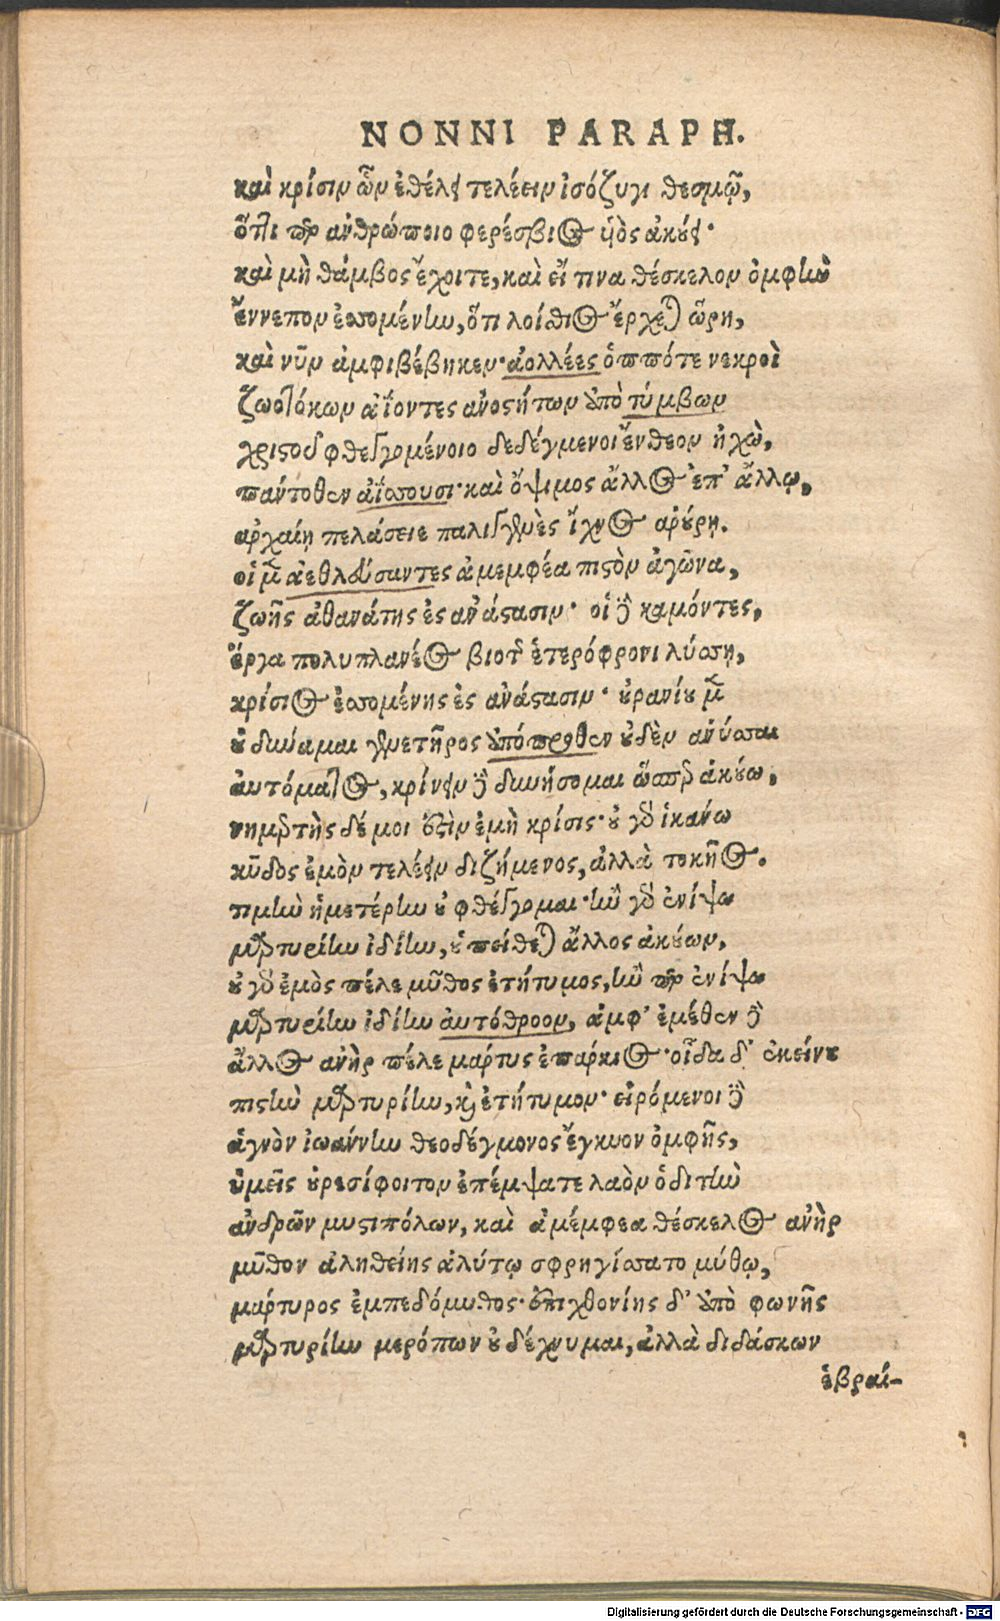 NONNI PARAPH.
καὶ κρίσιν ὧν ἐθέλει τελέειν ἰσόζυγι θεσμῷ,
ὅττι περ ἀνθρώποιο φερέσβιος υἱὸς ἀκούει·
καὶ μὴ θάμβος ἔχοιτε, καὶ εἴ τινα θέσκελον ὀμφὴν
ἔννεπον ἑσπομένην, ὅτι λοίσθιος ἔρχεται ὥρη,
καὶ νῦν ἀμφιβέβηκεν· ἀολλέες ὁππότε νεκροὶ
ζωοτόκων ἀΐοντες ἀνοστήτων ὑπὸ τύμβων
χριστοῦ φθεγγομένοιο δεδέγμενοι ἔνθεον ἠχὼ,
πάντοθεν ἀΐσσουσι· καὶ ὄψιμος ἄλλος ἐπ' ἄλλῳ,
ἀρχαίῃ πελάσειε παλιγγενὲς ἴχνος ἀρούρῃ.
οἱ μὲν ἀεθλεύσαντες ἀμεμφέα πιστὸν ἀγῶνα,
ζωῆς ἀθανάτης ἐς ἀνάστασιν· οἱ δὲ καμόντες,
ἔργα πολυπλανέος βιοτῆς ἑτερόφρονι λύσσῃ,
κρίσιος ἑσσομένης ἐς ἀνάστασιν· οὐρανίου μὲν
οὐ δύναμαι γενετῆρος ὑπόπροθεν οὐδὲν ἀνύσσαι
αὐτόματος, κρίνειν δὲ δυνήσομαι ὥσπερ ἀκούω,
νημερτὴς δέ μοι ἐστὶν ἐμὴ κρίσις· οὐ γὰρ ἱκάνω
κῦδος ἐμὸν τελέειν διζήμενος, ἀλλὰ τοκῆος.
τιμὴν ἡμετέρην οὐ φθέγγομαι· ἢν γὰρ ἐνίψω
μαρτυρίην ἰδίην, οὐ πείθεται ἄλλος ἀκούων,
οὐ γὰρ ἐμὸς πέλε μῦθος ἐτήτυμος, ἢν περ ἐνίψω
μαρτυρίην ἰδίην αὐτόθροον, ἀμφ' ἐμέθεν δὲ
ἄλλος ἀνὴρ πέλε μάρτυς ἐπάρκιος· οἶδα δ' ἐκείνου
πιστὴν μαρτυρίην, καὶ ἐτήτυμον· εἰρόμενοι δὲ
ἁγνὸν ἰωάννην θεοδέγμονος ἔγκυον ὀμφῆς,
ὑμεῖς οὐρεσίφοιτον ἐπέμψατε λαὸν ὁδιτὴν
ἀνδρῶν μυστιπόλων, καὶ ἀμέμφεα θέσκελος ἀνὴρ
μῦθον ἀληθείης ἀλύτῳ σφρηγίσσατο μύθῳ,
μάρτυρος ἐμπεδόμυθος· ἐπιχθονίης δ' ὑπὸ φωνῆς
μαρτυρίην μερόπων οὐ δέχνυμαι, ἀλλὰ διδάσκων
ἑβραί-
Digitalisierung gefördert durch die Deutsche Forschungsgemeinschaft - DFG